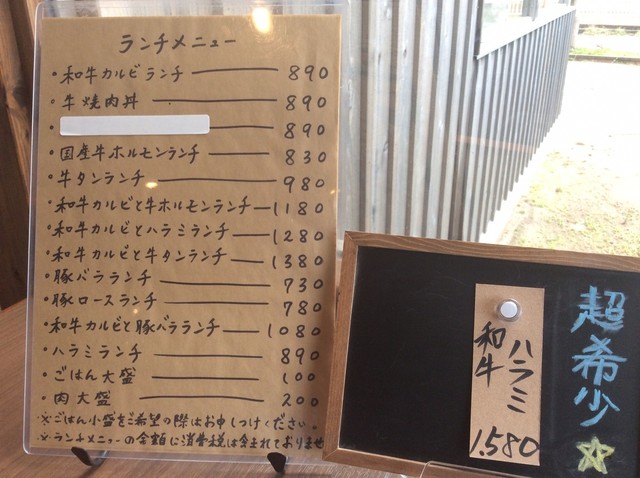 ランチメニュー
・和牛カルビランチ 890
・牛焼肉丼 890
・ 890
・国産牛ホルモンランチ 830
・牛タンランチ 980
・和牛カルビと牛ホルモンランチ 1180
・和牛カルビとハラミランチ 1280
・和牛カルビと牛タンランチ 1380
・豚バラランチ 730
・豚ロースランチ 780
・和牛カルビと豚バラランチ 1080
・ハラミランチ 890
・ごはん大盛 100
・肉大盛 200
※ごはん小盛をご希望の際はお申しつけください。
※ランチメニューの金額に消費税は含まれておりませ
超希少
和牛
ハラミ
1.580